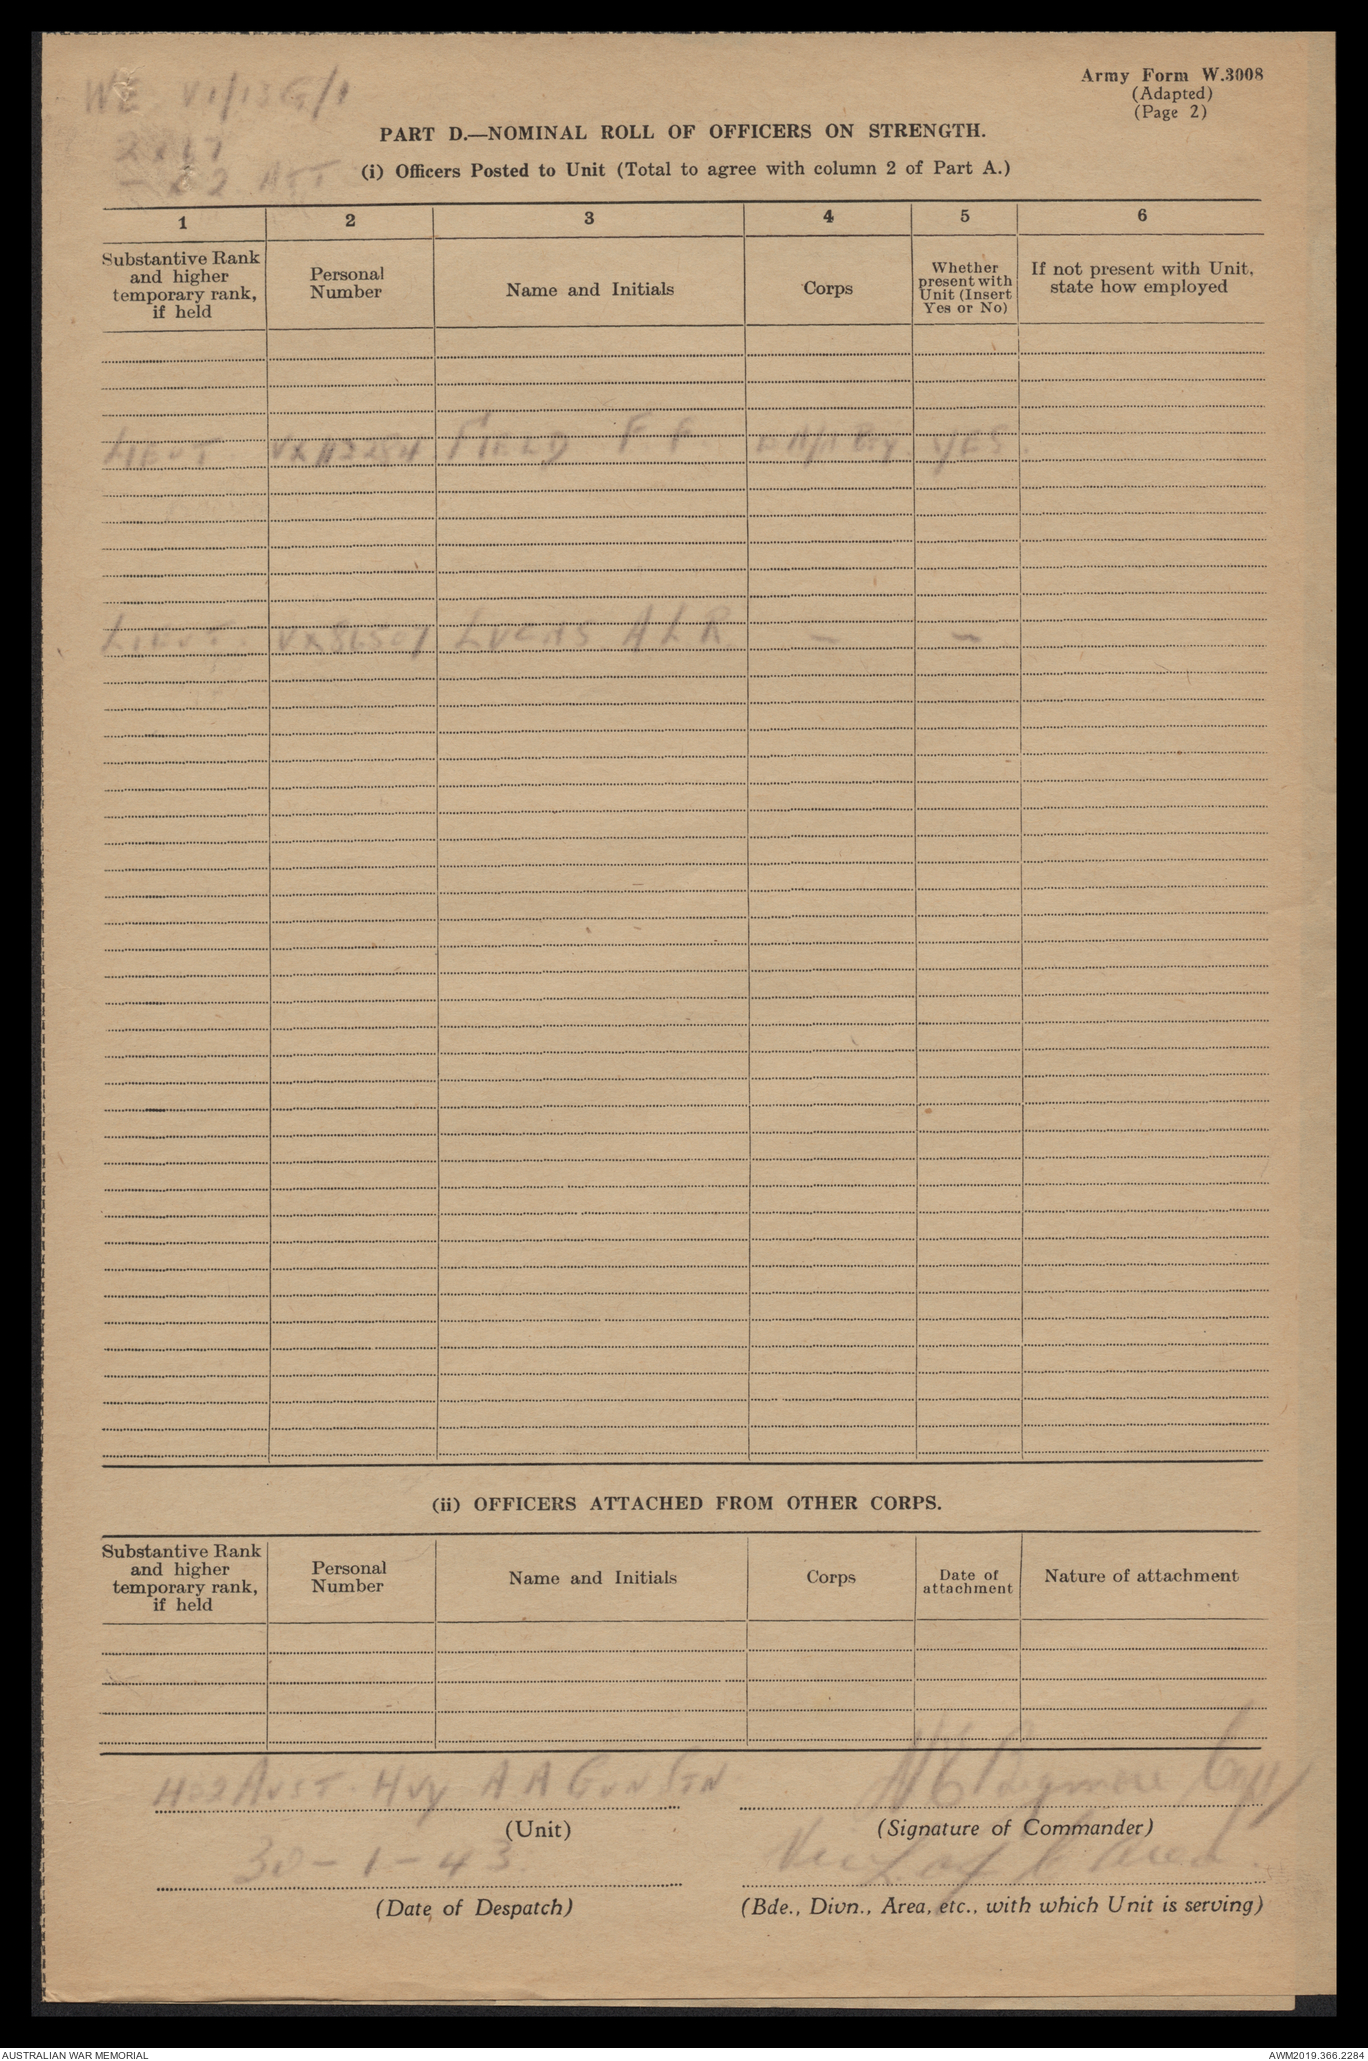 WE V1/13G/1
Army Form W.3008
(Adapted)
(Page 2)
PART D.—NOMINAL ROLL OF OFFICERS ON STRENGTH.
2 x 17
ATT
(i) Officers Posted to Unit (Total to agree with column 2 of Part A.)
1 2 3 4 5 6
Substantive Rank and higher temporary rank, if held
Personal Number
Name and Initials
Corps
Whether present with Unit (Insert Yes or No)
If not present with Unit, state how employed
LIEUT VX112284 FIELD F. F. YES.
LIEUT. LUCAS A L R. — —
(ii) OFFICERS ATTACHED FROM OTHER CORPS.
Substantive Rank and higher temporary rank, if held
Personal Number
Name and Initials
Corps
Date of attachment
Nature of attachment
402 AUST. HVY A A GUN STN
Capt
(Unit)
(Signature of Commander)
30-1-43
Vic L of C Area.
(Date of Despatch)
(Bde., Divn., Area, etc., with which Unit is serving)
AUSTRALIAN WAR MEMORIAL
AWM2019.366.2284